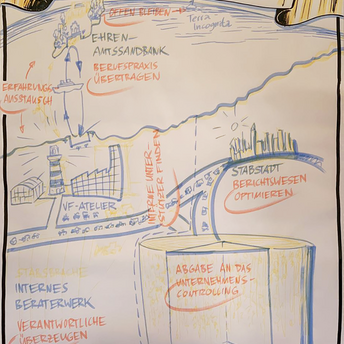 OFFEN BLEIBEN
Terra
Incognita
EHREN-
AMTSSANDBANK
BERUFSPRAXIS
ÜBERTRAGEN
ERFAHRUNGS
AUSTAUSCH
INTERNE UNTER-
STÜTZER FINDEN
STABSTADT
BERICHTSWESEN
OPTIMIEREN
VF-ATELIER
ABGABE AN DAS
UNTERNEHMENS-
CONTROLLING
INTERNES
BERATERWERK
VERANTWORTLICHE
ÜBERZEUGEN